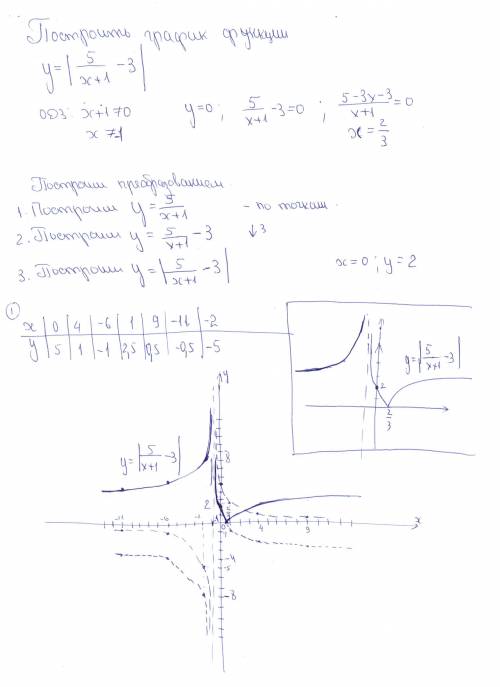 Построить график функции
y=|5/(x+1) −3|
ОДЗ: x+1≠0
x≠-1
y=0; 5/(x+1) −3=0; (5−3x−3)/(x+1)=0
x=2/3
Построим преобразованием
1. Построим y=5/(x+1) - по точкам.
2. Построим y=5/(x+1) −3 ↓3
3. Построим y=|5/(x+1) −3| x=0; y=2
①
x | 0 | 4 | -6 | 1 | 9 | -11 | -2
y | 5 | 1 | -1 | 2,5 | 0,5 | -0,5 | -5
y=|5/(x+1) −3|
2
2/3
y
y=|5/(x+1) −3|
8
2
-11 -6 -1 0 4 9 x
-4
-5
-8